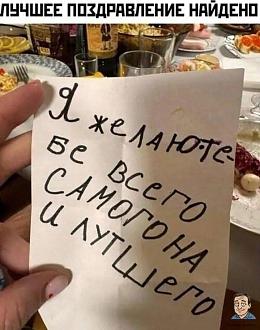 ЛУЧШЕЕ ПОЗДРАВЛЕНИЕ НАЙДЕНО
Я желаюте-
бе всего
САМОГОНА
и лутшего